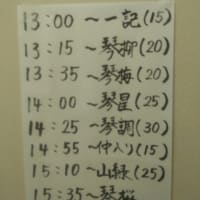 13:00 ～一記(15)
13:15 ～琴柳(20)
13:35 ～琴梅(20)
14:00 ～琴星(25)
14:25 ～琴調(30)
14:55 ～仲入り(15)
15:10 ～山緑(25)
15:35 ～琴桜